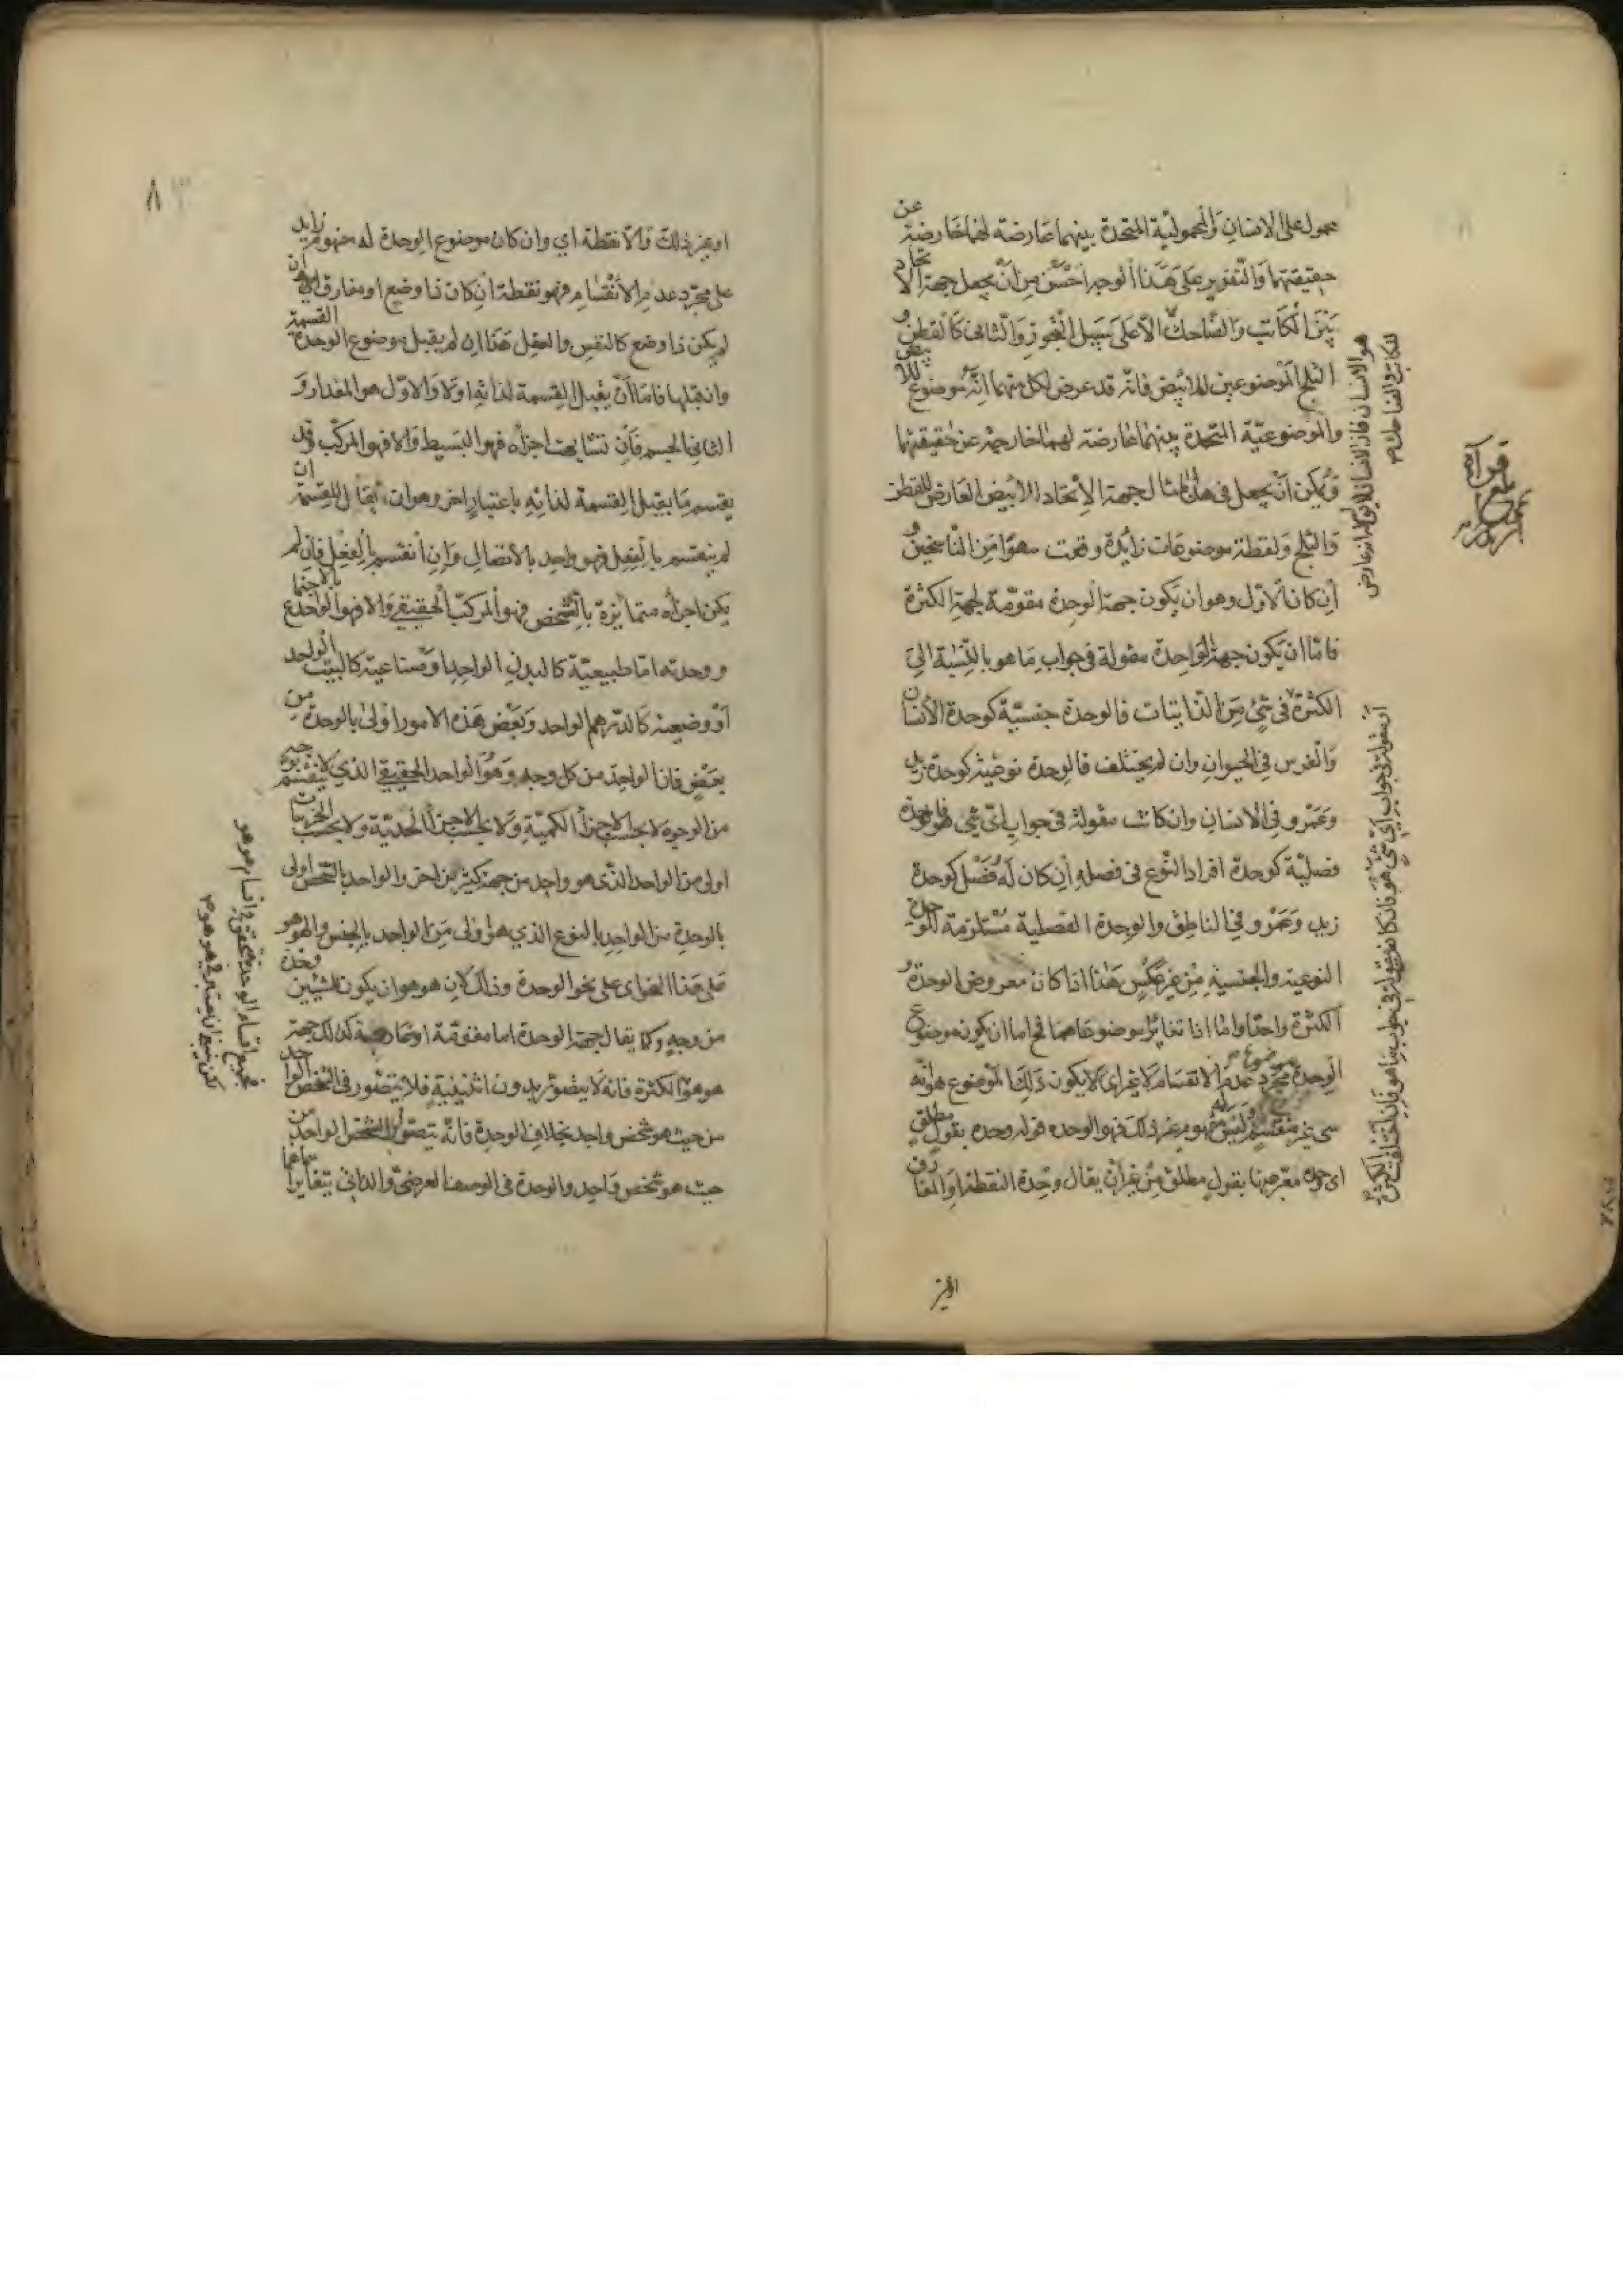 محمول على الانسان والمحمولية المتحدة بينهما عارضة لهما خارجة عن
حقيقتهما والتقرير على هذا الوجه احسن من ان يجعل جهة الاتحاد
بين الكاتب والضاحك الا على سبيل التجوز والثاني كالقطن و
الثلج الموضوعين للابيض فانه قد عرض لكل منهما انه موضوع للابيض
والموضوعية المتحدة بينهما عارضة لهما خارجة عن حقيقتهما
ويمكن ان يجعل في هذا المثال جهة الاتحاد الابيض العارض للقطن
والثلج ولفظة موضوعات زايدة وقعت سهوا من الناسخين و
ان كان الاول وهو ان يكون جهة الوحدة مقومة لجهة الكثرة
فاما ان يكون جهة الواحدة مقولة في جواب ما هو بالنسبة الى
الكثرة في شي من الذاتيات فالوحدة جنسية كوحدة الانسان
والفرس في الحيوان وان لم يختلف فالوحدة نوعية كوحدة زيد
وعمرو في الانسان وان كانت مقولة في جواب اي شي هو فالوحدة
فصلية كوحدة افراد النوع في فصله ان كان له فصل كوحدة
زيد وعمرو في الناطق والوحدة الفصلية مستلزمة للوحدة
النوعية والجنسية من غير عكس هذا اذا كان معروض الوحدة و
الكثرة واحدا واما اذا تغاير موضوعاهما فح اما ان يكون موضوع
الوحدة مجرد عدم الانقسام لا غير اي لا يكون ذلك الموضوع هو انه
شي غير منقسم وليس له مفهوم غير ذلك فهو الوحدة قوله وحده بقول مطلق
اي معرفها بقول مطلق من غير ان يقال وحدة النقطة او المفارق
او غير
هو الانسان فان الانسان
للكاتب والضاحك
او مقولة في جواب اي شي هو فان كان مقولة في جواب ما هو فان اختلفت الكثرة
بلغ قراءة
او غير ذلك والا نقطة اي وان كان موضوع الوحدة له مفهوم زايد
على مجرد عدم الانقسام فهو نقطة ان كان ذا وضع او مفارق ان
لم يكن ذا وضع كالنفس والعقل هذا ان لم يقبل موضوع الوحدة القسمة
وان قبلها فاما ان يقبل القسمة لذاته اولا والاول هو المقدار و
الثاني الجسم فان تشابهت اجزاه فهو البسيط والا فهو المركب وقد
يقسم ما يقبل القسمة لذاته باعتبار اخر وهو ان يقال القسمة ان
لم ينقسم بالفعل فهو واحد بالاتصال وان انقسم بالفعل فان لم
يكن اجزاه متمايزة بالشخص فهو المركب الحقيقي والا فهو الواحد بالاجتماع
ووحدته اما طبيعية كالبدن الواحد او صناعية كالبيت الواحد
او وضعية كالدرهم الواحد وبعض هذه الامور اولى بالوحدة من
بعض فان الواحد من كل وجه وهو الواحد الحقيقي الذي لا ينقسم بوجه
من الوجوه لا بحسب الاجزا الكمية ولا بحسب الاجزا الحدية ولا بحسب الجزئيات
اولى من الواحد الذي هو واحد من جهة كثير من اخر والواحد بالشخص اولى
بالوحدة من الواحد بالنوع الذي هو اولى من الواحد بالجنس والهوهو
على هذا النحو اي على نحو الوحدة وذلك لان هوهو ان يكون للشيئين وحدة
من وجه وكما يقال جهة الوحدة اما مقومة او عارضة كذلك جهة
هوهو الكثرة فانه لا يتصور بدون اثنينية فلا يتصور في الشخص الواحد
من حيث هو شخص واحد بخلاف الوحدة فانه يتصور للشخص الواحد من
حيث هو شخص واحد والوحدة في الوصف العرضي والذاتي يتغاير
فجميع اقسام الوحدة يتحقق في اقسام هوهو
لكن ينبغي ان يعتبر في هوهو
٨